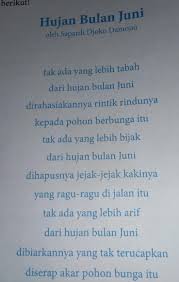 berikut!
Hujan Bulan Juni
oleh Sapardi Djoko Damono
tak ada yang lebih tabah
dari hujan bulan Juni
dirahasiakannya rintik rindunya
kepada pohon berbunga itu
tak ada yang lebih bijak
dari hujan bulan Juni
dihapusnya jejak-jejak kakinya
yang ragu-ragu di jalan itu
tak ada yang lebih arif
dari hujan bulan Juni
dibiarkannya yang tak terucapkan
diserap akar pohon bunga itu